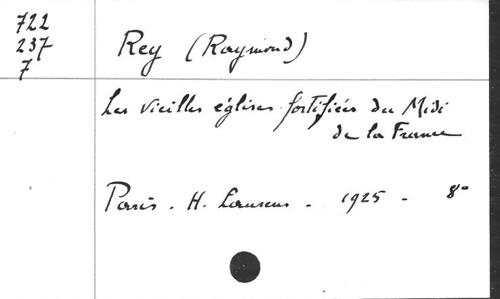 722
237
7
Rey (Raymond)
Les vieilles églises fortifiées du Midi
de la France
Paris. H. Laurens - 1925 - 8°